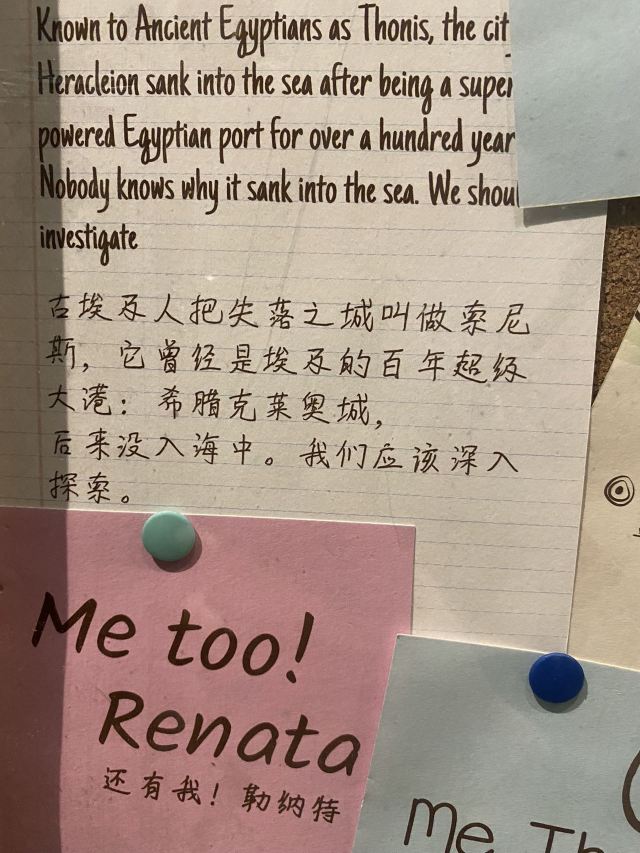 Known to Ancient Egyptians as Thonis, the cit
Heracleion sank into the sea after being a super
powered Egyptian port for over a hundred year
Nobody knows why it sank into the sea. We shou
investigate
古埃及人把失落之城叫做索尼
斯，它曾经是埃及的百年超级
大港：希腊克莱奥城，
后来没入海中。我们应该深入
探索。
Me too!
Renata
还有我！勒纳特
Me Th